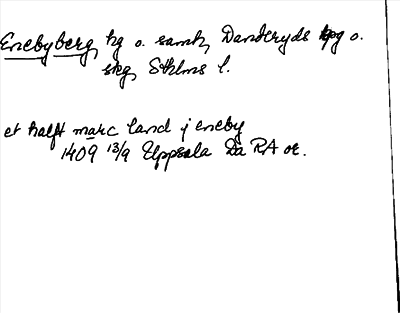 Enebyberg, hg o. samh, Danderyds kpg o.
skg, Sthlms l.
et halft marc land j eneby
1409 13/9 Uppsala Da RA or.